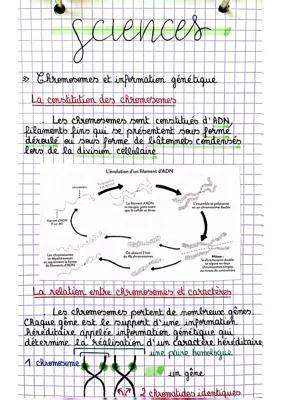 Sciences
» Chromosomes et information génétique
La constitution des chromosomes
Les chromosomes sont constitués d'ADN,
filaments fins qui se présentent sous forme
déroulé ou sous forme de bâtonnets condensés
lors de la division cellulaire.
L'évolution d'un filament d'ADN
Le filament d'ADN
se recopie juste avant
que la cellule se divise
L'ensemble se pelotonne
en un chromosome double
On obtient 2 lots
de 46 chromosomes
Les chromosomes
se dépelotonnent
Mitose :
le chromosome double
La relation entre chromosomes et caractères
Les chromosomes portent de nombreux gènes.
Chaque gène est le support d'une information
héréditaire appelée information génétique qui
détermine la réalisation d'un caractère héréditaire
une paire homologue
1 chromosome
un gène
2 chromatides identiques